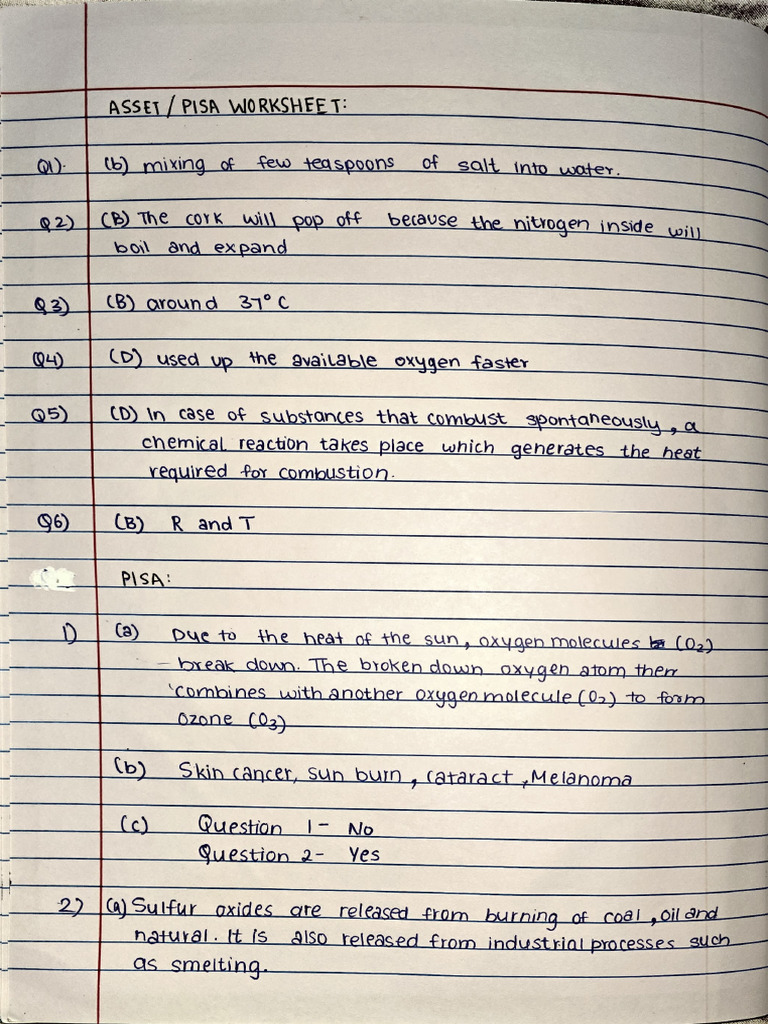 ASSET / PISA WORKSHEET:
Q1). (b) mixing of few teaspoons of salt into water.
Q2) (B) The cork will pop off because the nitrogen inside will
boil and expand
Q3) (B) around 37° C
Q4) (D) used up the available oxygen faster
Q5) (D) In case of substances that combust spontaneously, a
chemical reaction takes place which generates the heat
required for combustion.
Q6) (B) R and T
PISA:
1) (a) Due to the heat of the sun, oxygen molecules (O₂)
break down. The broken down oxygen atom then
combines with another oxygen molecule (O₂) to form
ozone (O₃)
(b) Skin cancer, sun burn, cataract, Melanoma
(c) Question 1- No
Question 2- Yes
2) (a) Sulfur oxides are released from burning of coal, oil and
natural. It is also released from industrial processes such
as smelting.